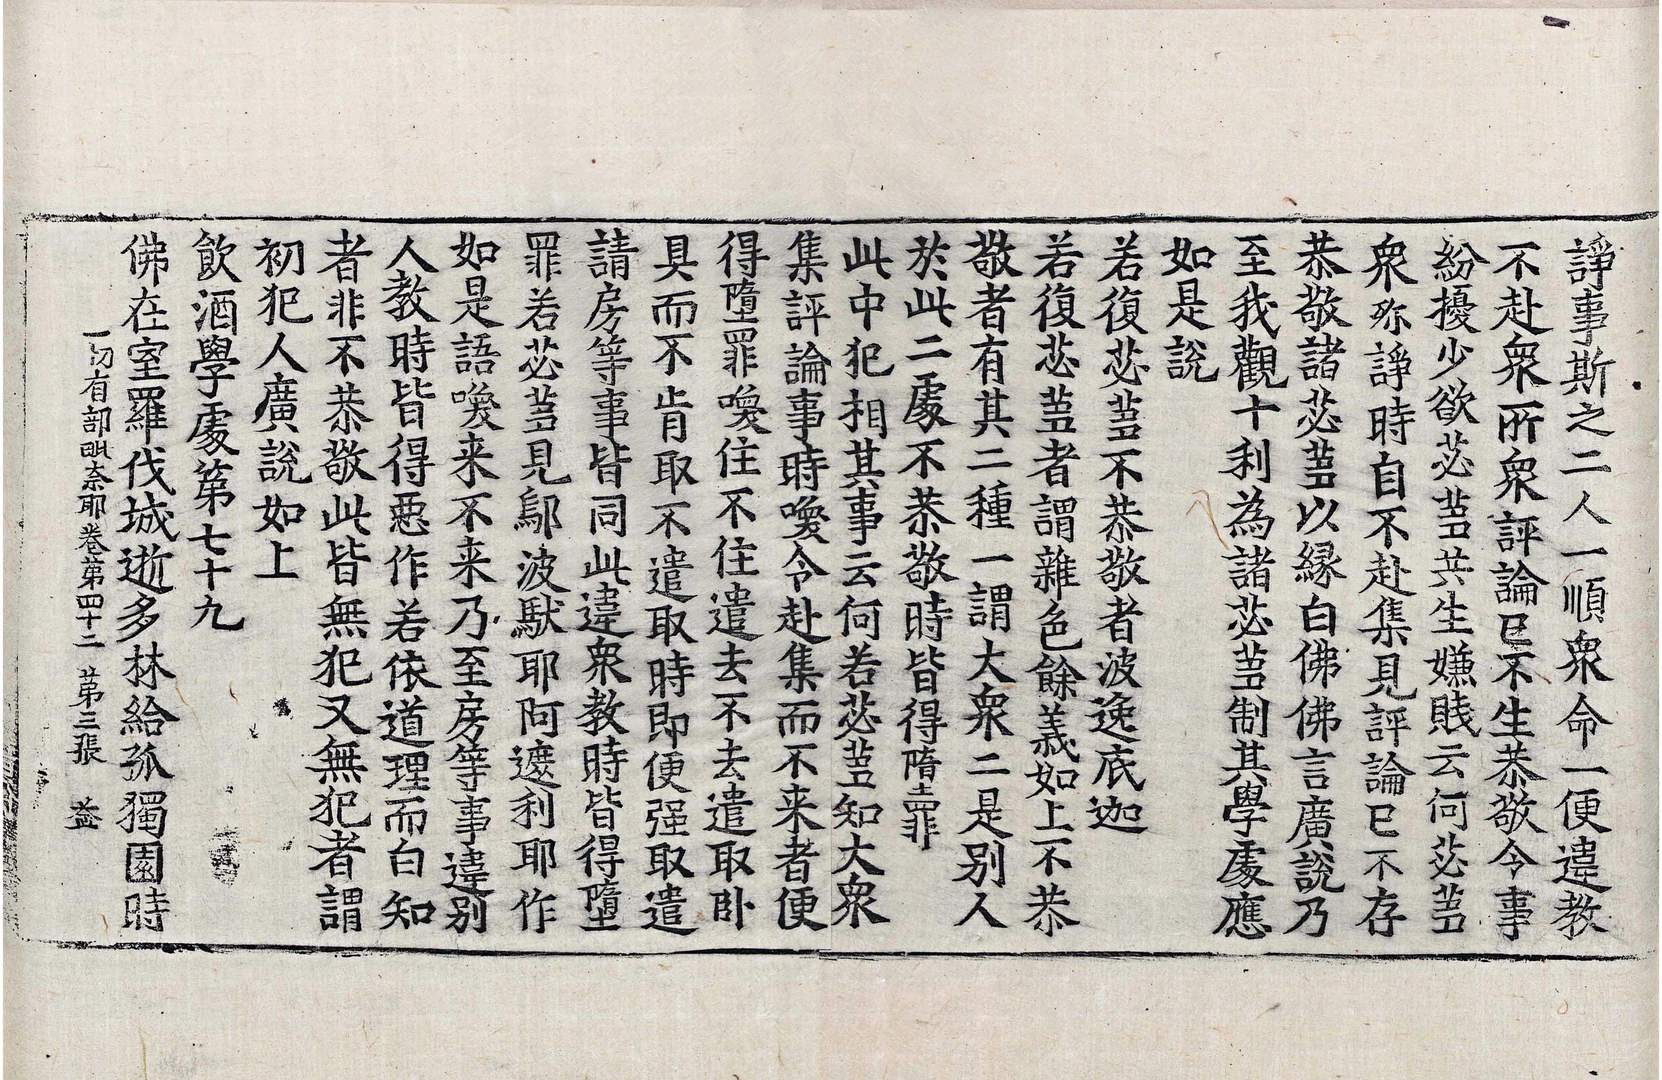 諍事斯之二人一順衆命一便違教
不赴衆所衆評論已不生恭敬令事
紛擾少欲苾蒭共生嫌賤云何苾蒭
衆殄諍時自不赴集見評論已不存
恭敬諸苾蒭以縁白佛佛言廣說乃
至我觀十利為諸苾蒭制其學處應
如是說
若復苾蒭不恭敬者波逸底迦
若復苾蒭者謂雜色餘義如上不恭
敬者有其二種一謂大衆二是别人
於此二處不恭敬時皆得墮罪
此中犯相其事云何若苾蒭知大衆
集評論事時喚令赴集而不来者便
得墮罪喚住不住遣去不去遣取卧
具而不肯取不遣取時即便强取遣
請房等事皆同此違衆教時皆得墮
罪若苾蒭見鄔波馱耶阿遮利耶作
如是語喚来不来乃至房等事違别
人教時皆得惡作若依道理而白知
者非不恭敬此皆無犯又無犯者謂
初犯人廣說如上
飲酒學處第七十九
佛在室羅伐城逝多林給孤獨園時
一切有部毗奈耶卷第四十二 第三張 益